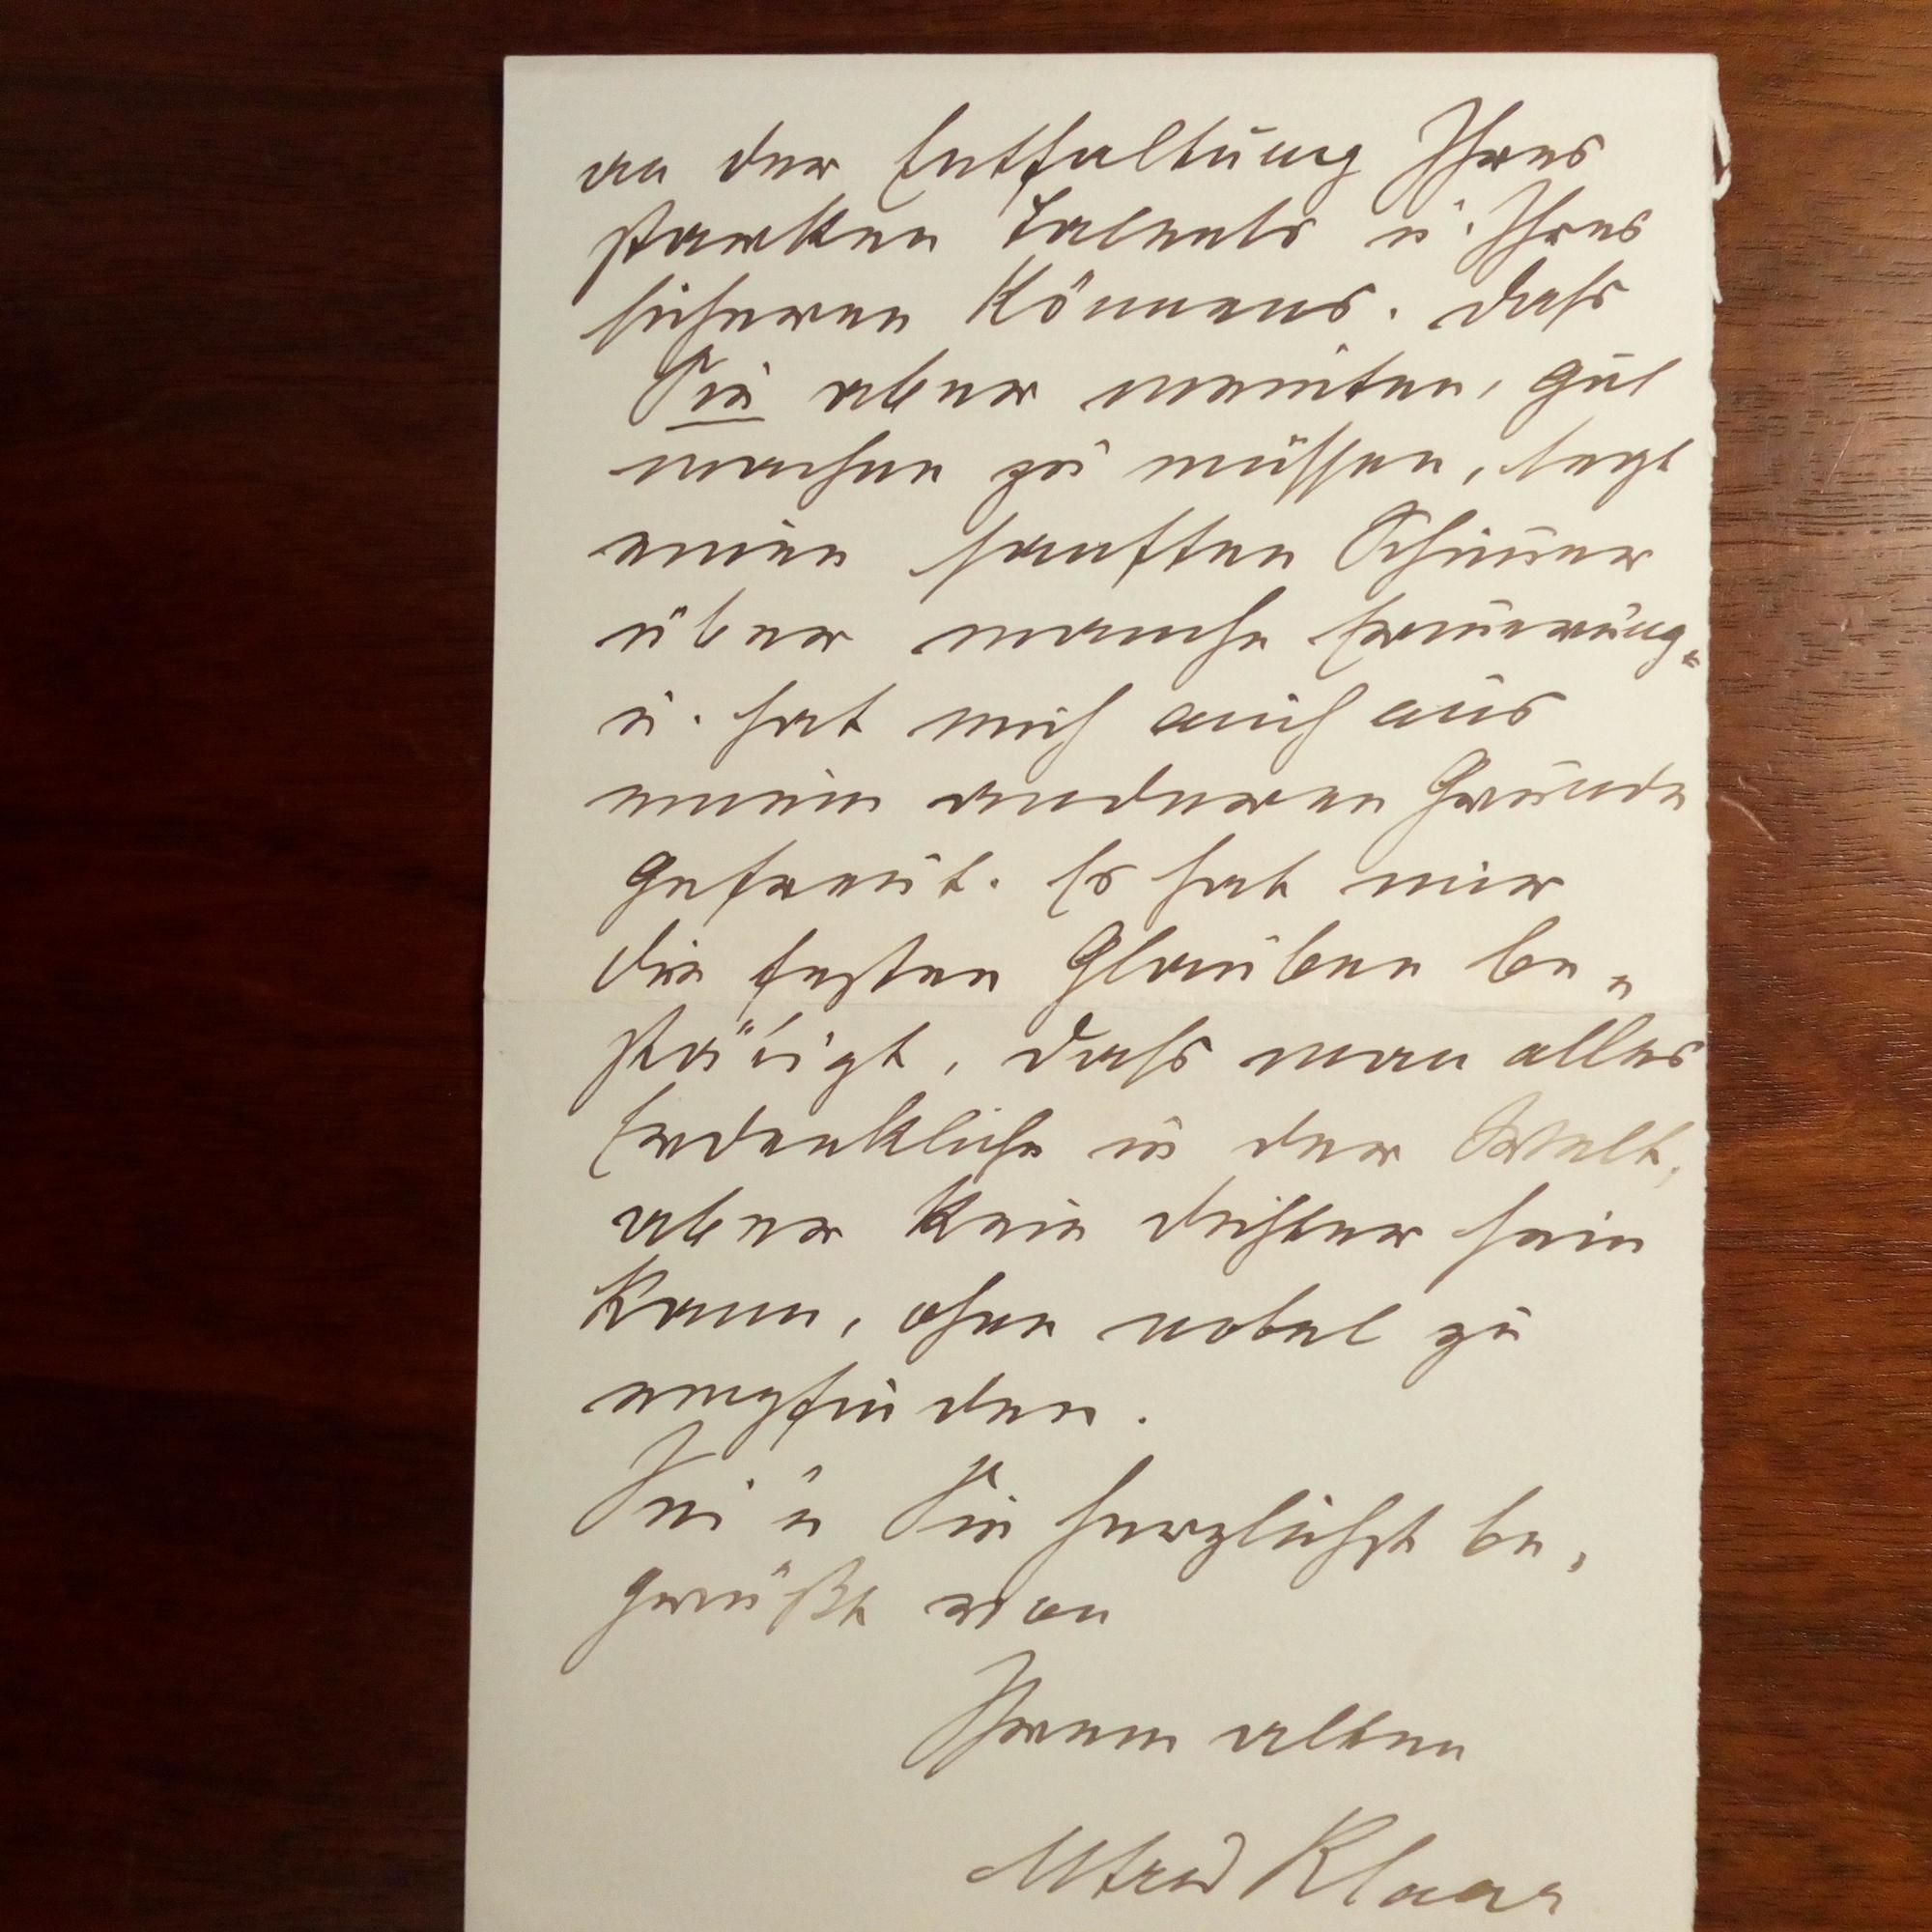 an der Entfaltung Ihres
starken Talents u. Ihres
sicheren Könnens. Dass
Sie aber meinten, gut
machen zu müssen, legt
einen sanften Schimmer
über manche Erinnerung
u. hat mich auch aus
einem anderen Grunde
gefreut. Es hat mir
die festen Glauben be-
stätigt, dass man alles
Erdenkliche in der Welt,
aber kein Dichter sein
kann, ohne nobel zu
empfinden.
Sei u Sie herzlichst be-
grüßt von
Ihrem alten
Alfred Klaar